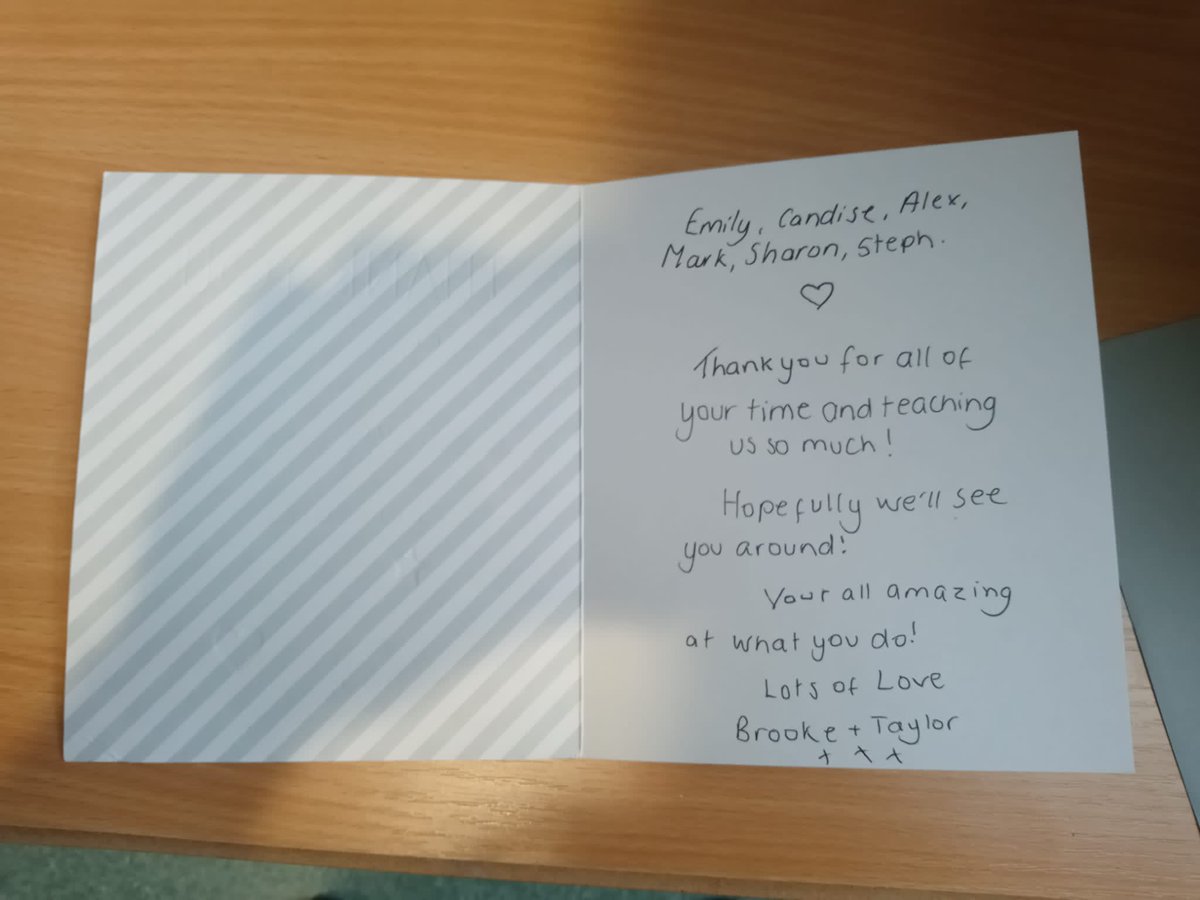 Emily, Candise, Alex,
Mark, Sharon, Steph.
♡
Thank you for all of
your time and teaching
us so much!
Hopefully we'll see
you around!
Your all amazing
at what you do!
Lots of Love
Brooke + Taylor
x x x